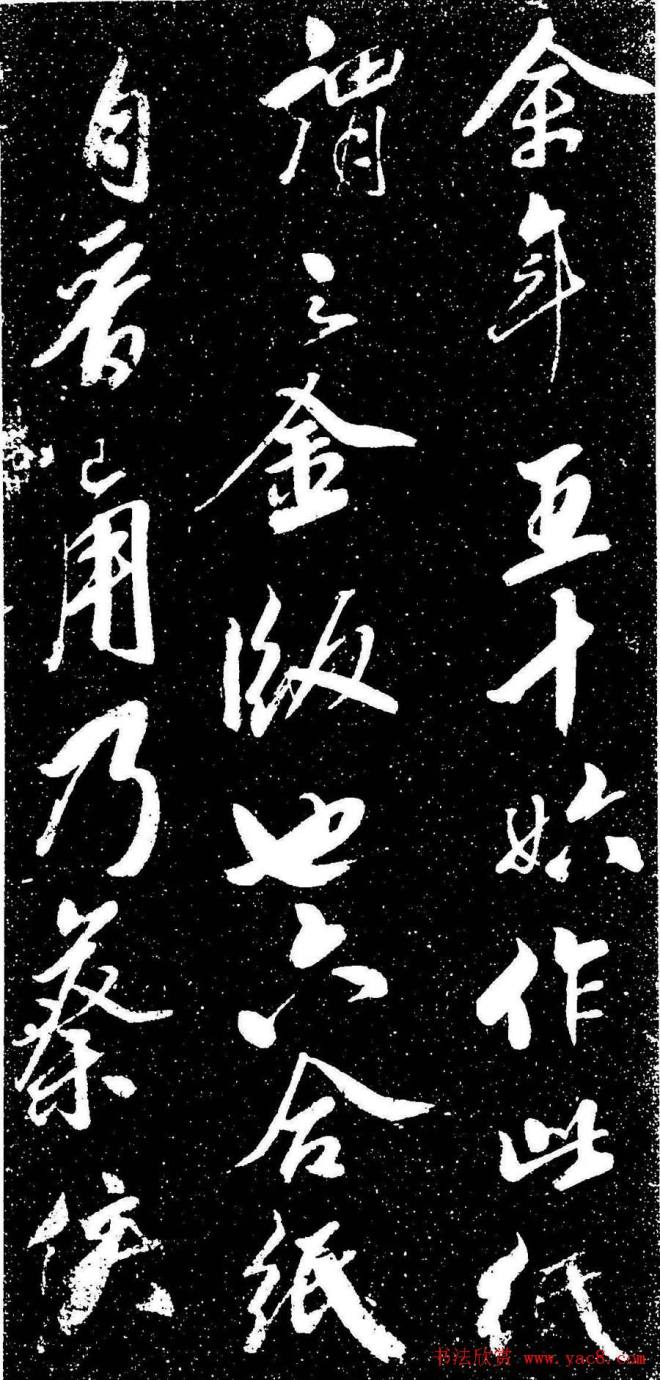 余年五十始作此紙
謂之金版也六合紙
自晉已用乃蔡侯
书法欣赏 www.yac8.com